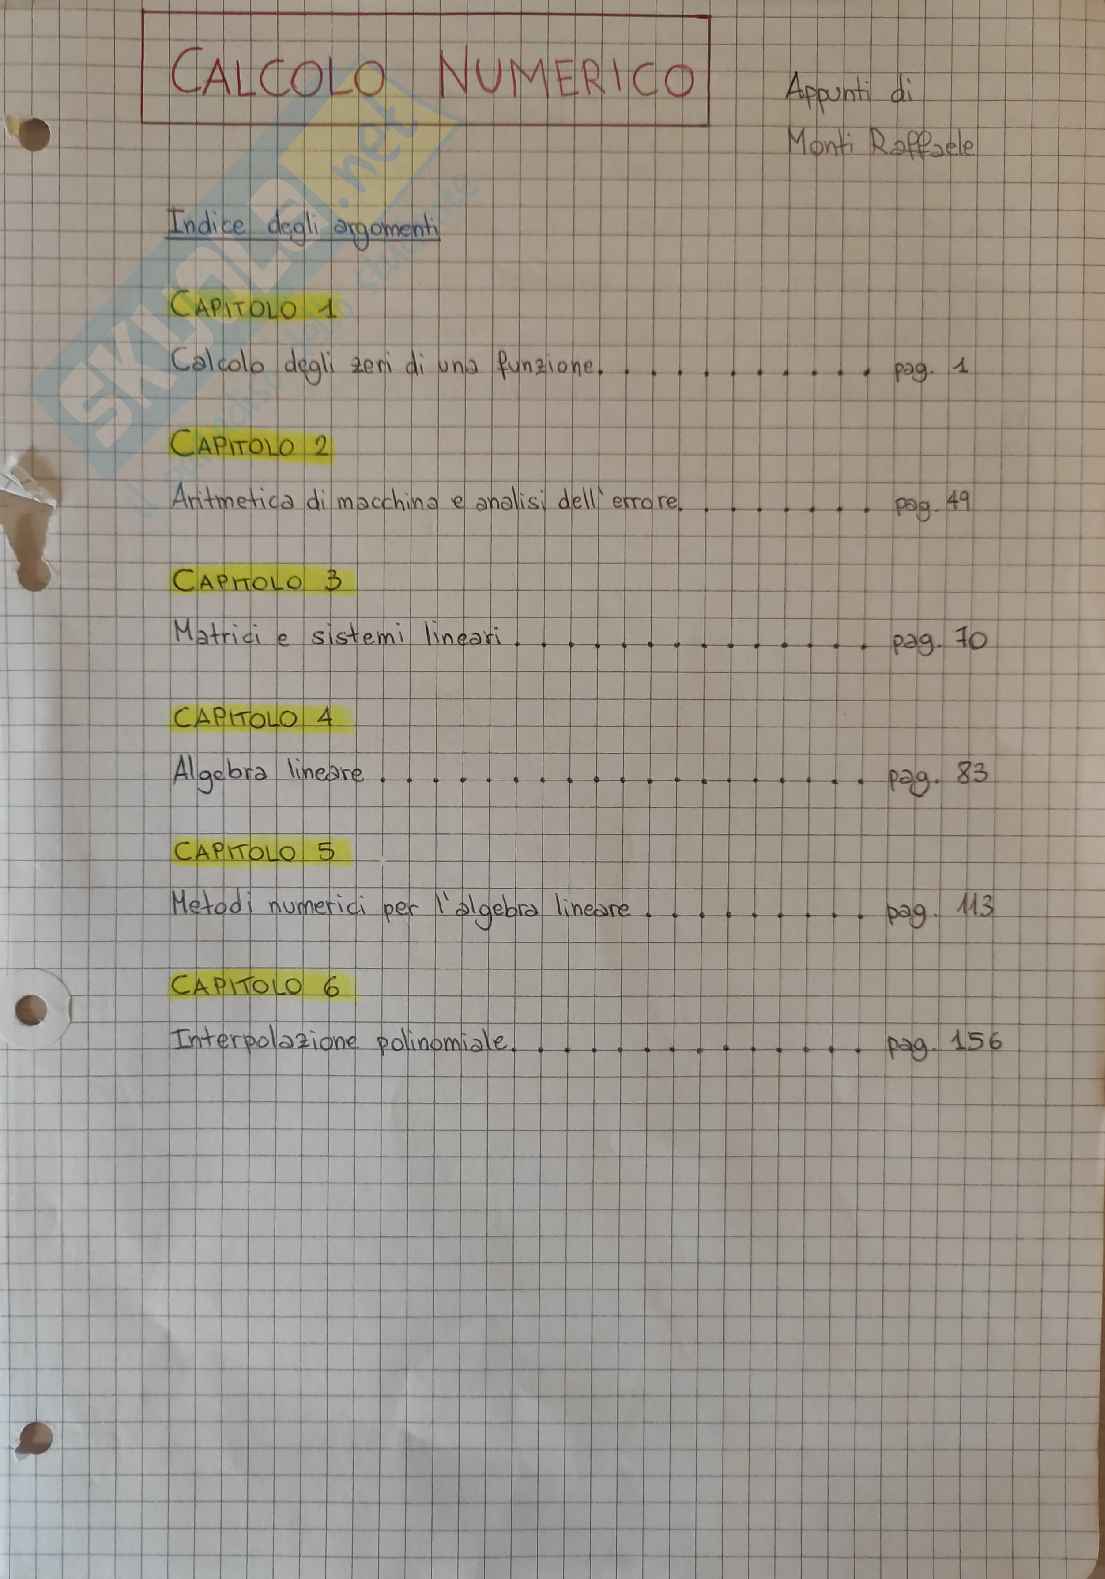 CALCOLO NUMERICO
Appunti di
Monti Raffaele
Indice degli argomenti
CAPITOLO 1
Calcolo degli zeri di una funzione. . . . . . . . . . . pag. 1
CAPITOLO 2
Aritmetica di macchina e analisi dell'errore. . . . . . . . pag. 49
CAPITOLO 3
Matrici e sistemi lineari . . . . . . . . . . . . . . pag. 70
CAPITOLO 4
Algebra lineare . . . . . . . . . . . . . . . . . . . pag. 83
CAPITOLO 5
Metodi numerici per l'algebra lineare . . . . . . . . . pag. 113
CAPITOLO 6
Interpolazione polinomiale. . . . . . . . . . . . . . pag. 156
SKUOLA.net